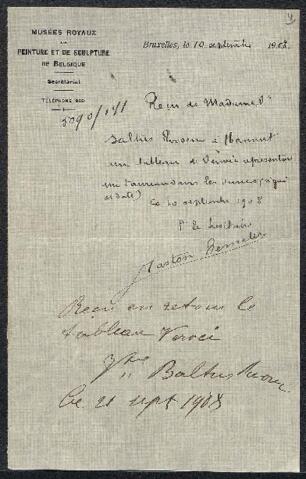 MUSÉES ROYAUX
DE
PEINTURE ET DE SCULPTURE
DE BELGIQUE
Secrétariat
TÉLÉPHONE
Bruxelles, le 10 septembre 1908
Reçu de Madame
Baltus à Hannut
un tableau de Vervée représentant
dans les dunes (signé
et daté)
Ce 10 septembre 1908
Pr le Secrétaire
Gaston
Reçu en retour le
tableau Vervée
Vve Baltus
Le 21 sept 1908